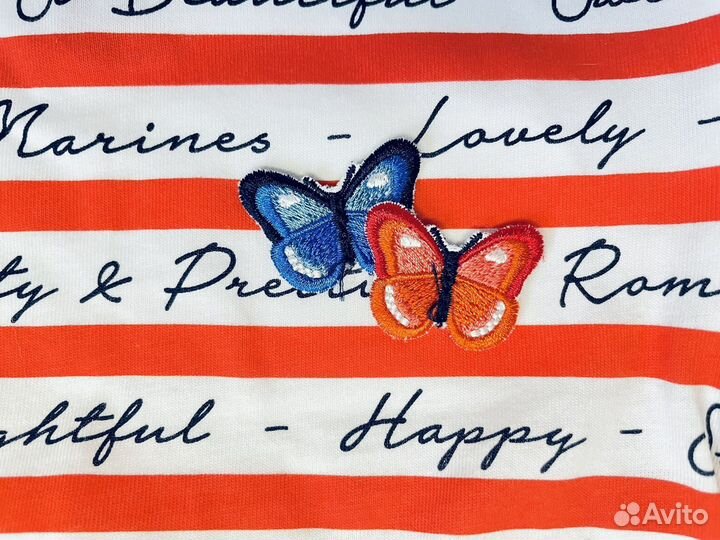 Beautiful -
Marines - Lovely -
ty & Pretty Rom
ghtful - Happy -
Avito